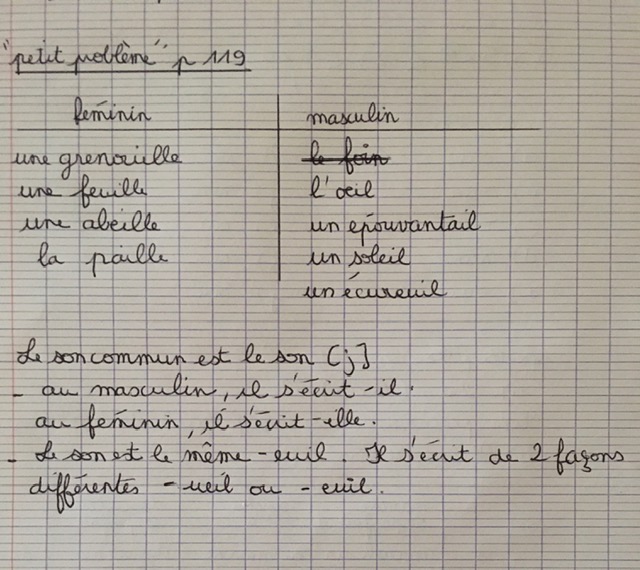 "petit problème" p 119
féminin masculin
une grenouille le foin
une feuille l'œil
une abeille un épouvantail
la paille un soleil
un écureuil
Le son commun est le son [j]
- au masculin, il s'écrit -il.
au féminin, il s'écrit -ille.
- Le son est le même -euil. Il s'écrit de 2 façons
différentes -ueil ou -euil.